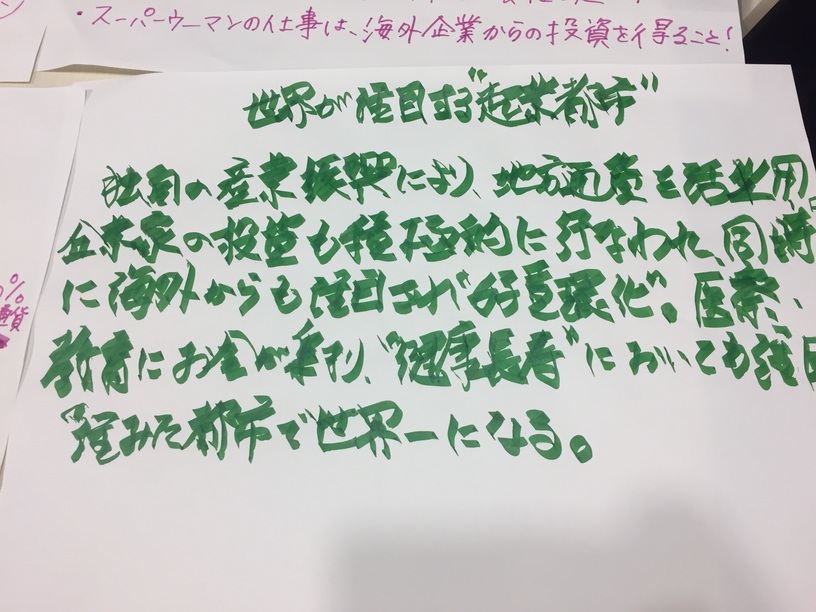 ・スーパーウーマンの仕事は、海外企業からの投資を得ること!
世界が注目する"起業都市"
独自の産業振興により、地方通貨を活用
企業家の投資も積極的に行なわれ、同時
に海外からも注目され"好循環化"。医療、
教育にお金が乗り、"健康長寿"においても注目
"住みたい都市で世界一になる。
%
通貨